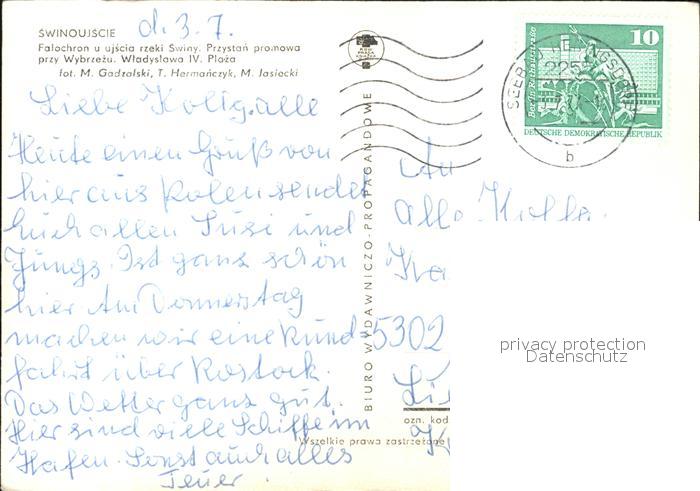 SWINOUJSCIE
Falochron u ujścia rzeki Swiny. Przystań promowa
przy Wybrzeżu. Władysława IV. Plaża
fot. M. Gadzalski, T. Hermańczyk, M. Jasiecki
d. 3. 7.
Liebe alle
Heute einen Gruß von
hier aus Polen sendet
Euch allen Susi und
Jungs. Ist ganz schön
hier Am Donnerstag
machen wir eine Rund=
fahrt über Rostock.
Das Wetter ganz gut.
Hier sind viele Schiffe im
Hafen. Sonst auch alles
Teuer.
BIURO WYDAWNICZO-PROPAGANDOWE
Wszelkie prawa zastrzeżone
10
Berlin, Rathausstraße
DEUTSCHE DEMOKRATISCHE REPUBLIK
SEEBAD
225
b
An
alle
5302
ozn. kod
privacy protection
Datenschutz